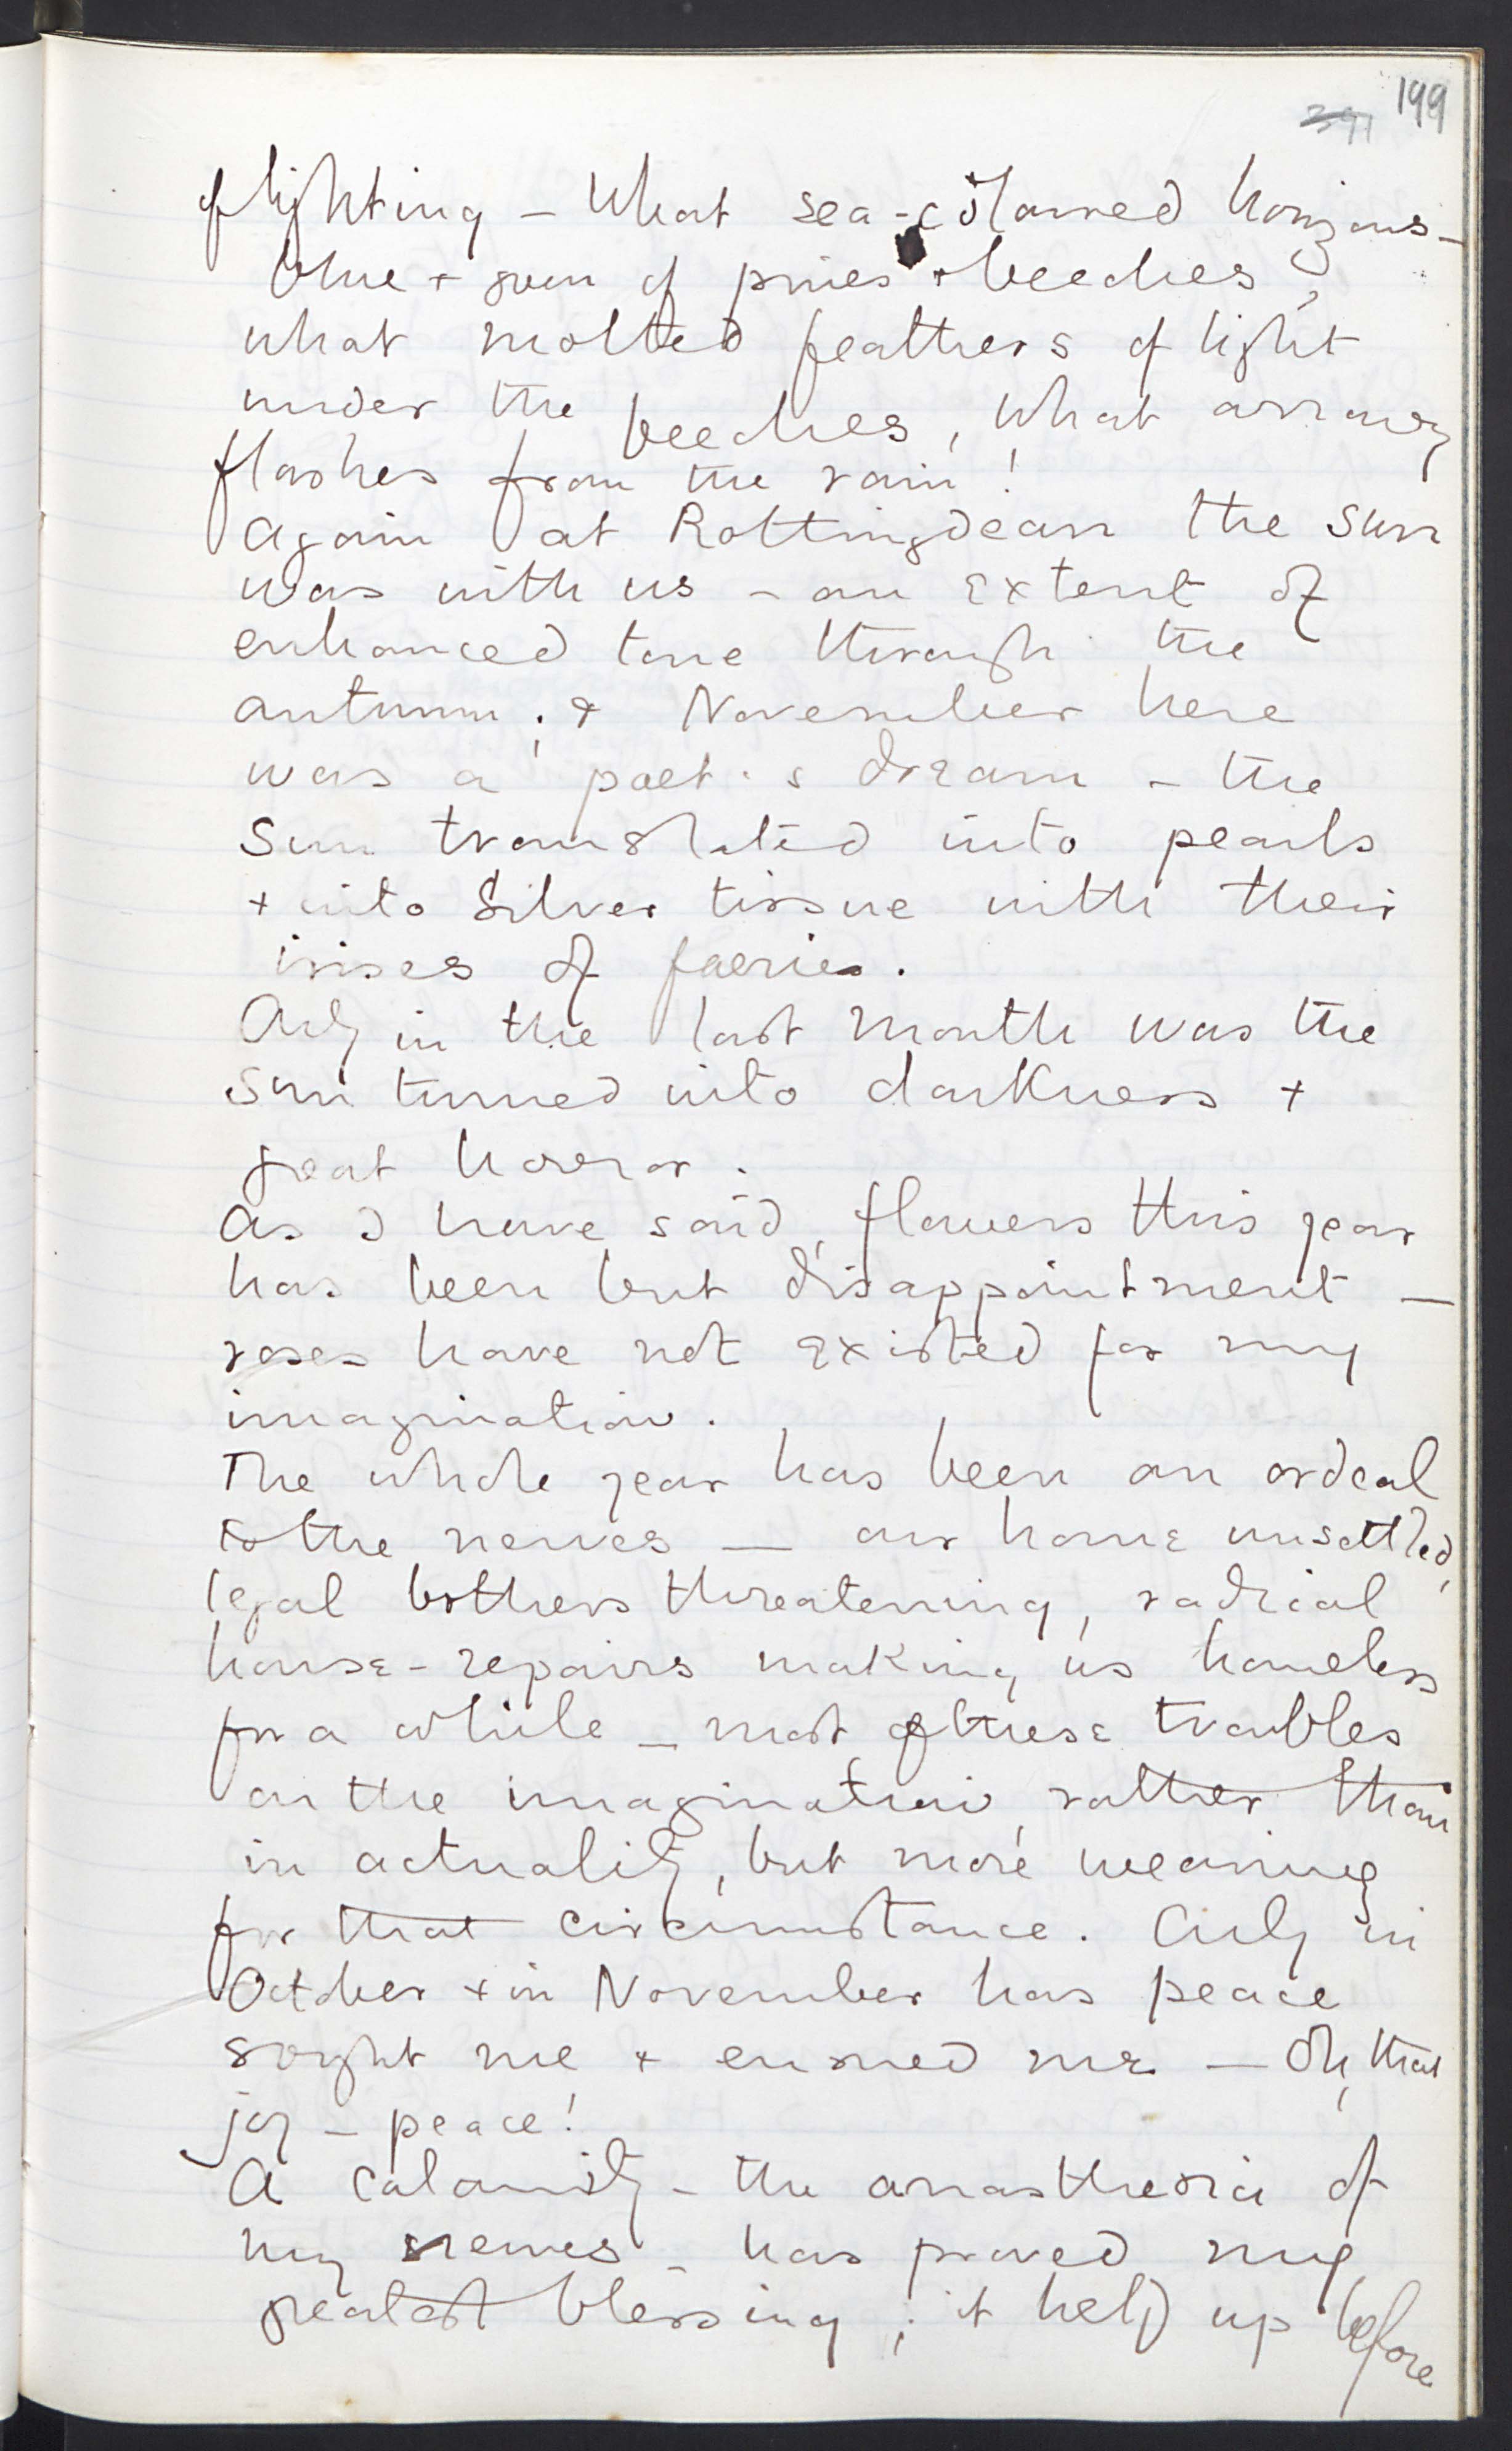 199
391
of lighting – What sea-coloured horizons –
blue + green of pines + beeches,
what molted feathers of light
under the beeches, what arrowy
flashes from the rain!
Again at Rottingdean the sun
was with us – an extent of
enhanced tone through the
autumn; & November here
was a poet's dream – the
sun translated into pearls
+ into Silver tissue with their
irises of faeries.
Only in the last month was the
sun turned into darkness +
great horror.
As I have said, flowers this year
has been but disappointment –
roses have not existed for my
imagination.
The whole year has been an ordeal
to the nerves – our home unsettled,
legal bothers threatening, radical
house-repairs making us homeless
for a while – most of these troubles
on the imagination, rather than
in actuality, but more wearing
for that circumstance. Only in
October + in November has peace
soght me + ensued me – Oh, that
joy – peace!
A calamity – the anasthesia of
my nerves – has proved my
greatest blessing; it held up before